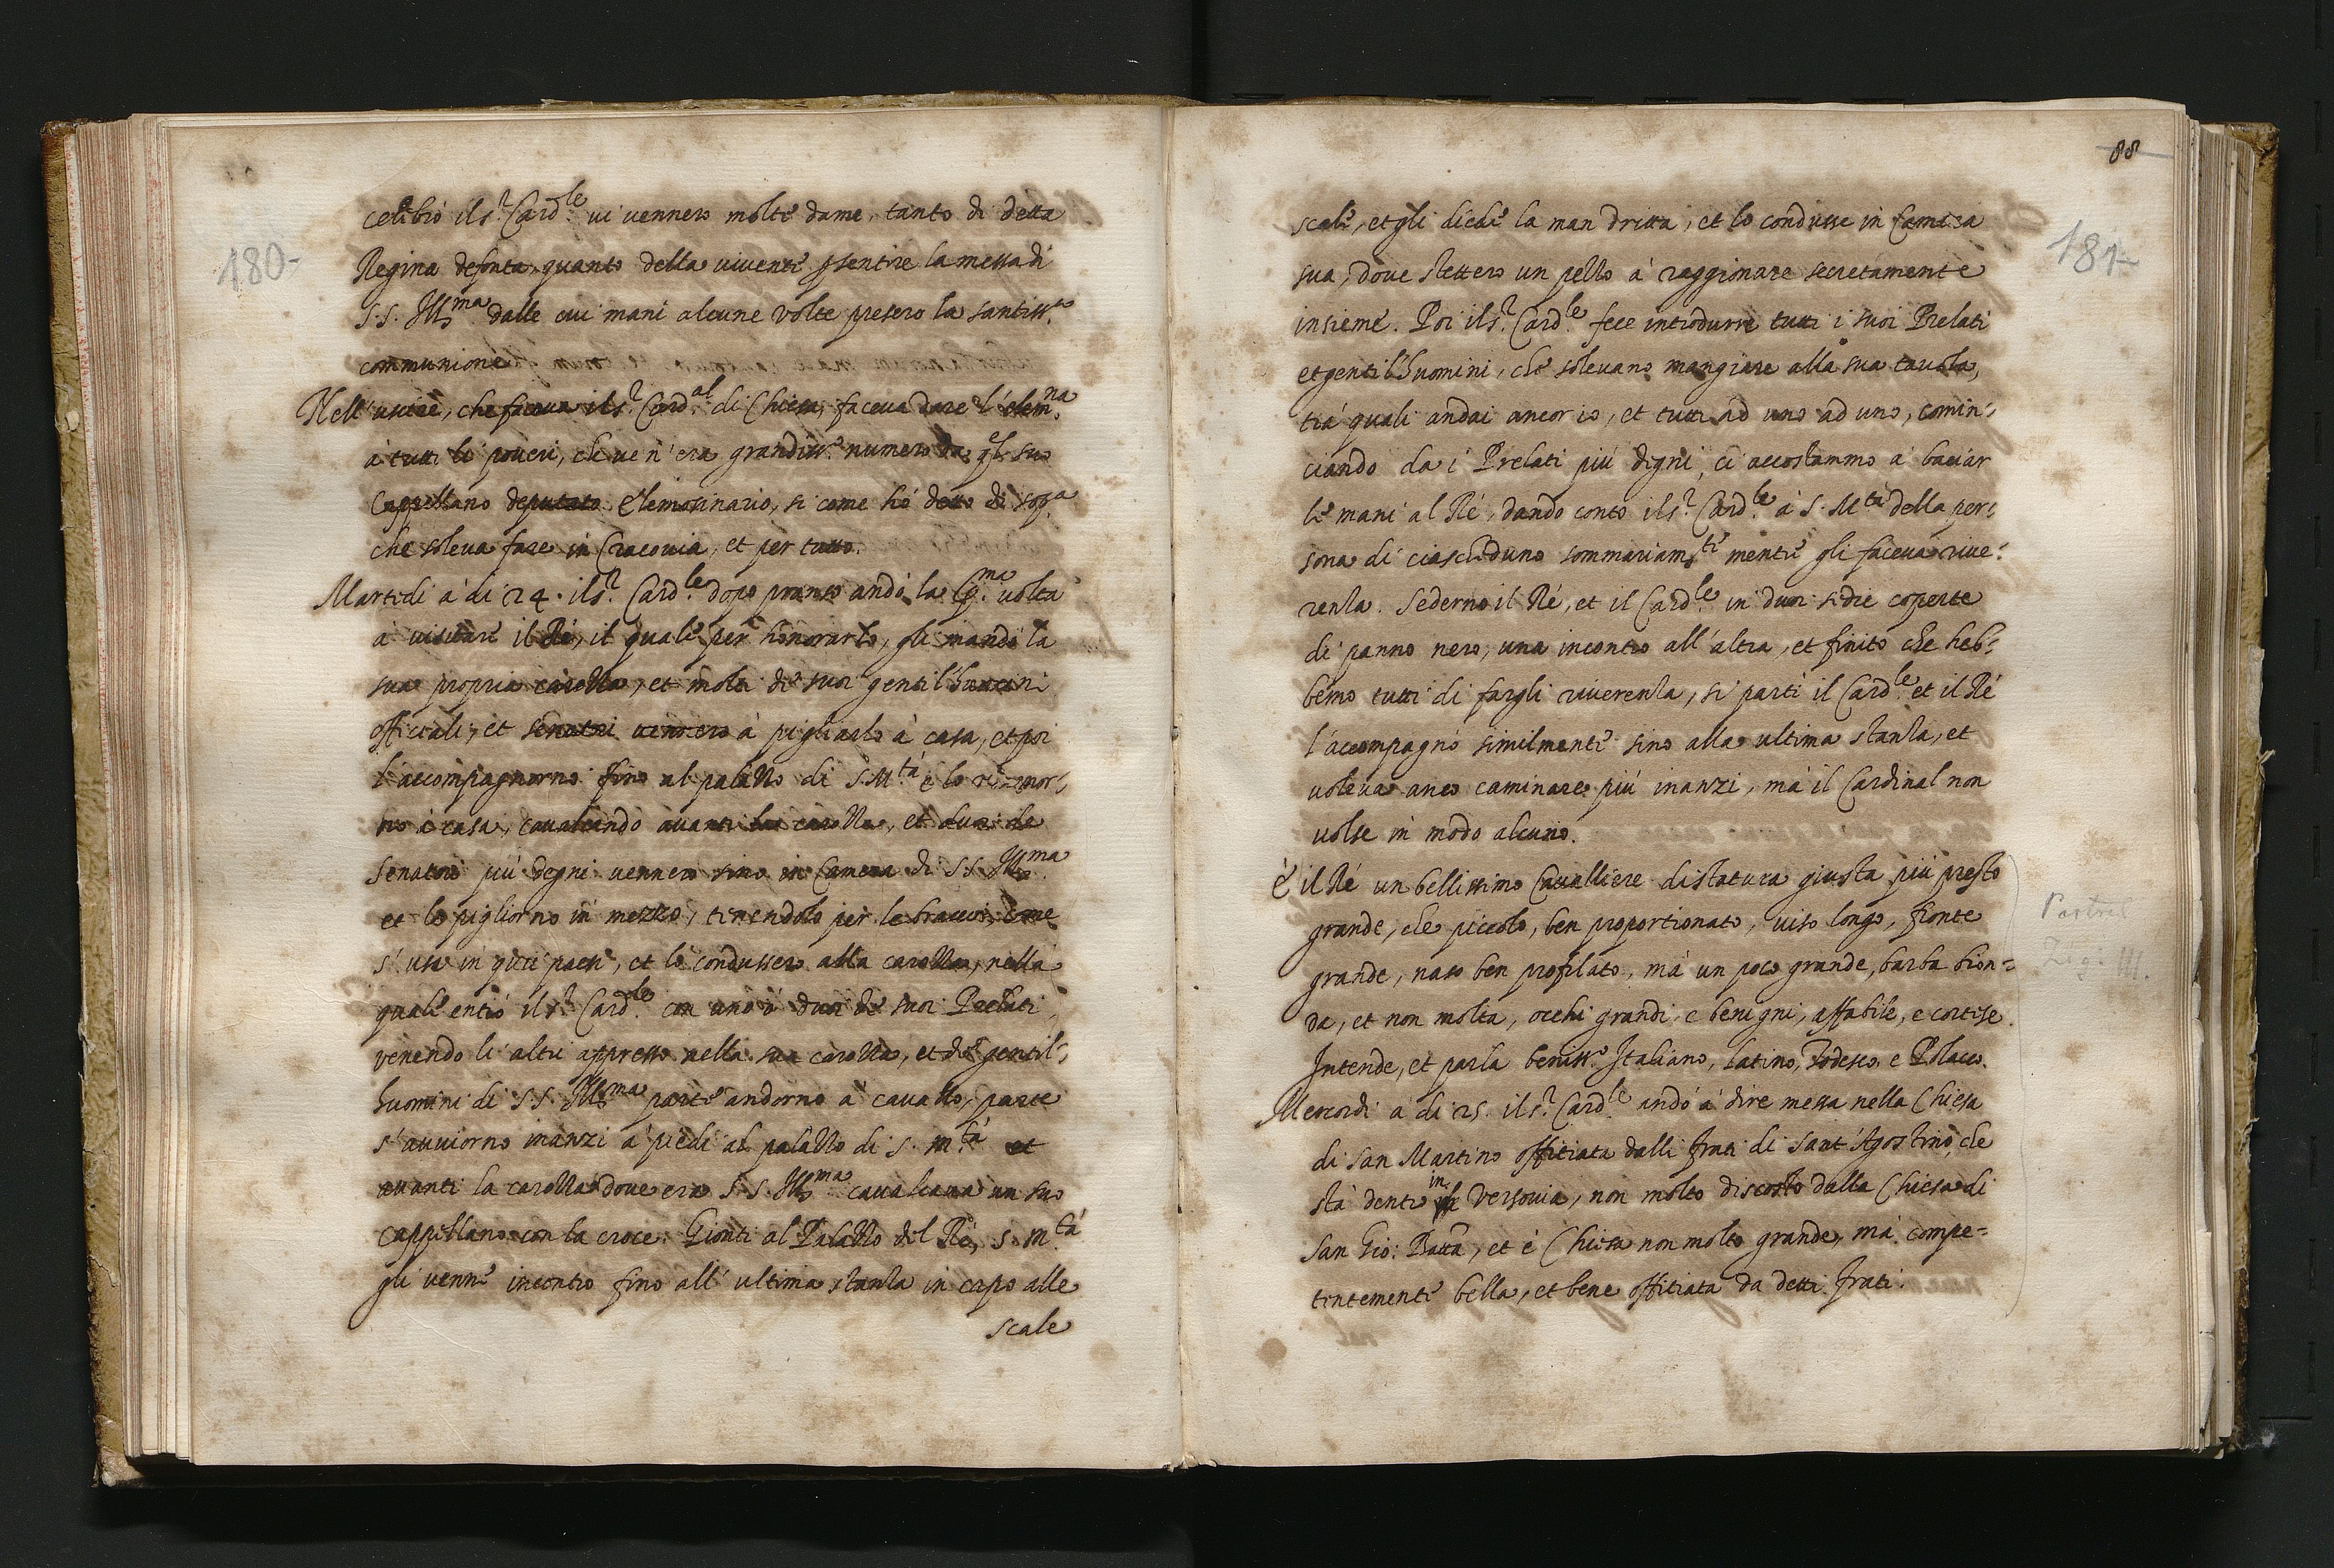 180-
celebrò il S.r Card.le vi vennero molte dame, tanto di detta
Regina defonta, quanto della vivente p sentire la messa di
S.S. Ill.ma dalle cui mani alcune volte presero la santiss.a
communione
Nell'uscire, che faceva il S.r Card.al di Chiesa, faceva dare l'elem.na
à tutti li poveri, che ve n'era grandiss.o numero da q.l suo
Cappellano deputato Elemosinario, si come hò detto di sop.a
che soleva fare in Cracovia, et per tutto.
Martedi à di 24. il S.r Card.le dopo pranso andò la volta
à visitare il Rè, il quale per honorarlo, gli mandò la
sua propria carozza, et molti de suoi gentil'huomini
officiali, et senatori vennero à pigliarlo à casa, et poi
l'accompagnorno fino al palazzo di S.M.tà e lo rimor,
no à casa, cavalcando avanti la carozza, et duoi de
Senatori più degni vennero sino in Camera di S.S. Ill.ma
et lo pigliorno in mezzo, tenendolo per le braccia, come
s'usa in q.sti paesi, et lo condussero alla carozza, nella
quale entrò il S.r Card.le con uno ò duoi de suoi Prelati,
venendo li altri appresso nella sua carozza, et de gentil,
huomini di S.S. Ill.ma parte andorno à cavallo, parte
s'avviorno inanzi à piedi al palazzo di S. M.tà et
avanti la carozza dove era S.S. Ill.ma cavalcava un suo
Cappellano con la croce. Gionti al Palazzo del Rè, S. M.tà
gli venne incontro fino all'ultima stanza in capo alle
scale
88
181-
scale, et gli diede la man dritta, et lo condusse in Camera
sua, dove stettero un pezzo à raggionare secretamente
insieme. Poi il S.r Card.le fece introdurre tutti i suoi Prelati
et gentil'huomini, che solevano mangiare alla sua tavola,
trà quali andai ancor io, et tutti ad uno ad uno, comin,
ciando da i Prelati più digni, ci accostammo à baciar
le mani al Rè, dando conto il S.r Card.le à S. M.tà della per,
sona di ciascheduno sommariam.te mentre gli faceva rive,
renza. Sederno il Rè, et il Card.le in duoi sedie coperte
di panno nero, una incontro all'altra, et finito che heb,
bemo tutti di fargli riverenza, si partì il Card.le et il Rè
l'accompagnò similmente sino alla ultima stanza, et
voleva anco caminare più inanzi, mà il Cardinal non
volse in modo alcuno.
È il Rè un bellissimo Cavalliere di statura giusta più presto
grande, che piccolo, ben proportionato, viso longo, fronte
grande, naso ben profilato, mà un poco grande, barba bion=
da, et non molta, occhi grandi, e benigni, affabile, e cortese.
Intende, et parla beniss.o Italiano, Latino, Todesco, e Polacco.
Portret
Zyg. III.
Mercordì à di 25. il S.r Card.le andò à dire messa nella Chiesa
di San Martino offitiata dalli frati di Sant'Agostino, che
stà dentro in Versovia, non molto discosto dalla Chiesa di
San Gio: Batta, et è Chiesa non molto grande, mà compe=
tentemente bella, et bene offitiata da detti frati.